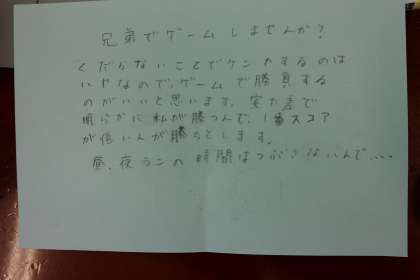 兄弟でゲームしませんか?
くだらないことでケンカするのは
いやなので、ゲームで勝負する
のがいいと思います。実力差で
明らかに私が勝つんで、1番スコア
が低い人が勝ちとします。
昼、夜ラこの時間はつぶさないんで、...